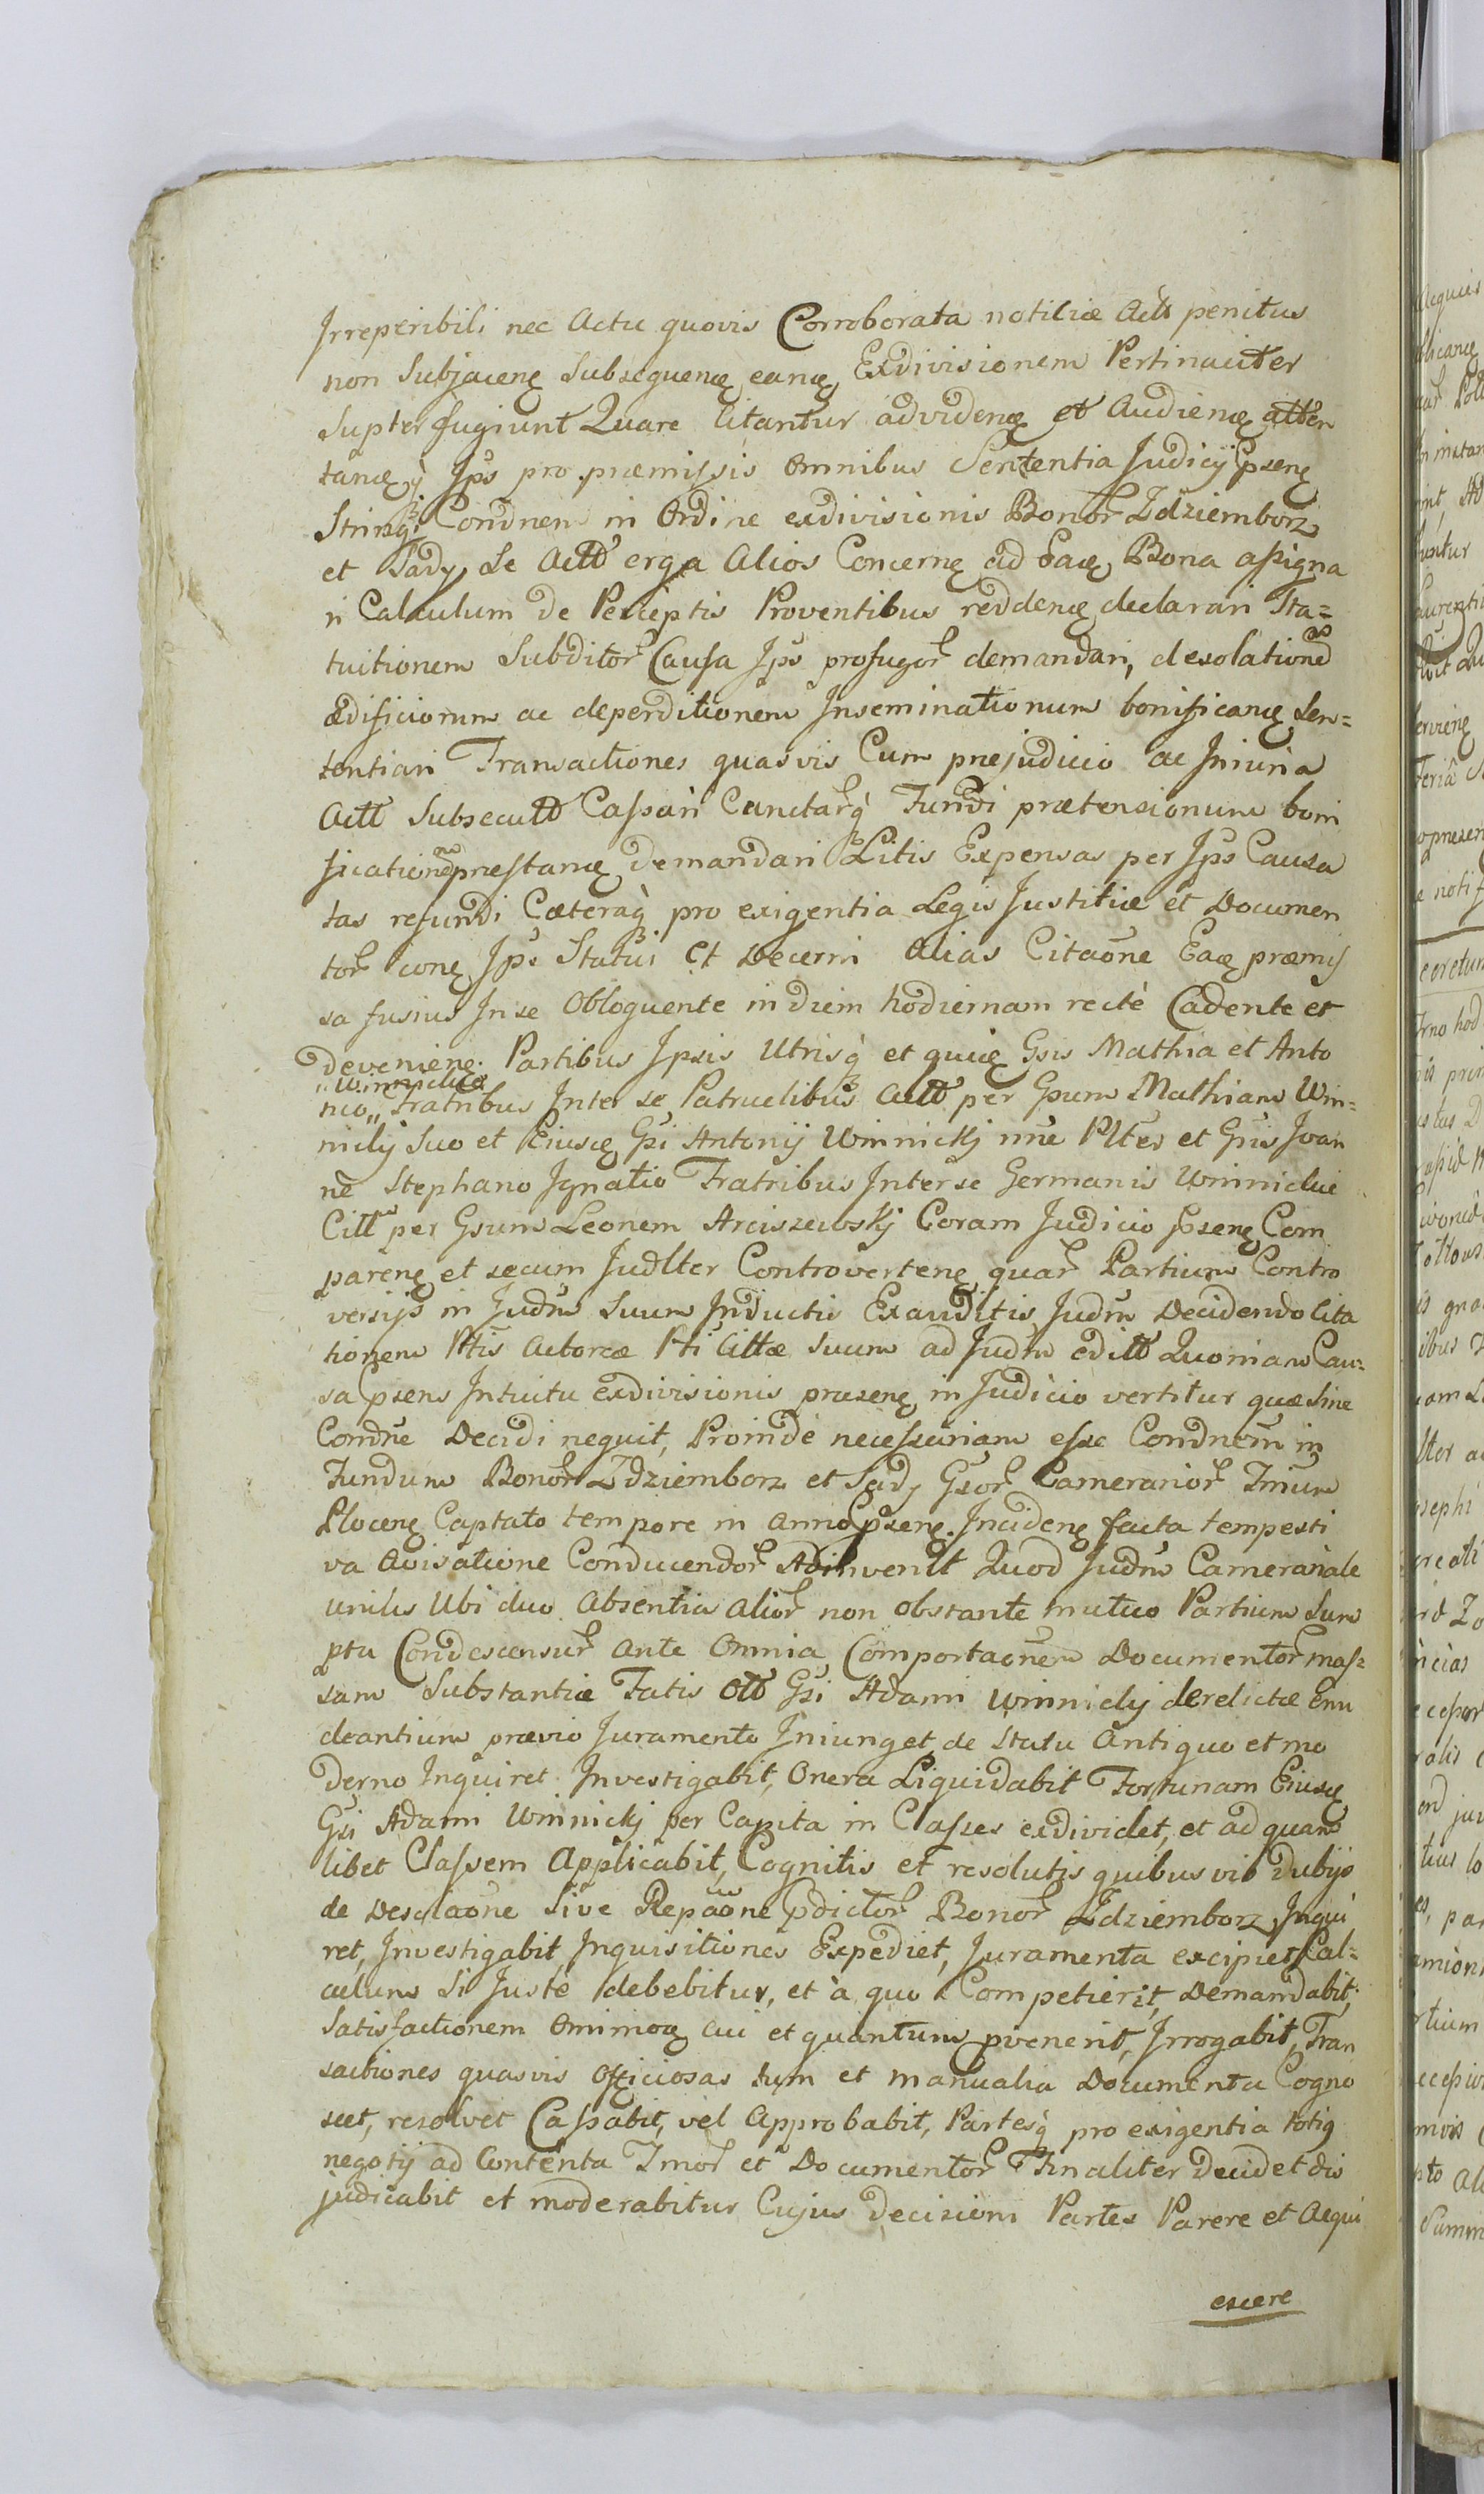 Irreperibili nec Actu quovis Corroborata notitiæ Actt penitus
non Subjacenę Subsequenę eanę Exdivisionem Pertinaciter
Supterfugiunt Quare Citantur advidenę et Audienę atten
tanę Ips pro præmissis Omnibus Sententia Judicij Psenę
Stringi Condnem in Ordine exdivisionis Bonor Zdziemborz
et Sady Se Actt erga Alios Concernę ad Eaę Bona assigna
ri Calculum de Perceptis Proventibus reddenę declarari Sta=
tuitionem Subditor Causa Ips profugor demandari, desolationē
ædificiorum ac deperditionem Inseminationum bonificanę Sen=
tentiari Transactiones quasvis Cum prejudicio ac Iniuria
Actt Subsecutt Cassari Cunctarq Fundi prætensionum boni
ficationē præstanę demandari Litis Expensas per Ips Causa
tas refundi Cæteraq pro exigentia Legis Justitiæ et Documen
tor conę Ips Statui et Decerni Alias Citaōne Eaę præmis
sa fusius Inse Obloquente in diem hodiernam rectè Cadente et
devenienę. Partibus Ipsis Utrisq et quię Gsis Mathia et Anto
"Winnickie
nio" Fratribus Inter se Patruelibus Actt per Gsum Mathiam Win=
nicky Suo et Eiusę Gsi Antonij Winnickj nne Pltes et Gsis Ioan
nē Stephano Ignatio Fratribus Inter se Germanis Winnickie
Citt per Gsum Leonem Arciszewskj Coram Judicio psenę Com
parenę et secum Judlter Controvertenę quar Partium Contro
versijs in Judm Suum Inductis Exauditis Judm Decidendo Cita
tionem Ptis Actoreæ Pti Cittæ Suum ad Judm editt Quoniam Cau=
sa psens Intuitu exdivisionis præsenę in Judicio vertitur quæ Sine
Condne Decidi nequit, Proinde necessariam esse Condnem in
Fundum Bonor Zdziemborz et Sady Gsor Camerarior Trium
Plocenę Captato tempore in anno psenę. Incidenę facta tempesti
va Avisatione Conducendor Adinvenit Quod Judm Camerariale
unius Ubi duo Absentia Alior non obstante mutuo Partium Sum
ptu Condescensur Ante Omnia Comportaōnem Documentor mas=
sam Substantiæ Fatis Ott Gsi Adami Winnicky derelictæ enu
cleantium prævio Juramento Iniunget de Statu Antiquo et mo
derno Inquiret Investigabit, Onera Liquidabit Fortunam Eiusę
Gsi Adami Winnickj per Capita in Classes exdividet, et ad quam
libet Classem Applicabit, Cognitis et resolutis quibusvis Dubijs
de Desolaōne Sive Repaōne pdictor Bonor Zdziemborz, Inqui
ret, Investigabit Inquisitiones Expediet, Juramenta excipiet Cal=
culum Si Justè debebitur, et à quo Competierit, Demandabit;
Satisfactionem Omimoę cui et quantum pvenerit, Irrogabit, Tran
sactiones quasvis Officiosas tum et manualia Documenta Cogno
scet, resolvet Cassabit, vel Approbabit, Partesq pro exigentia totig
negotij ad Contenta Imor et Documentor Finaliter Decidet dis
judicabit et moderabitur Cujus Decisioni Partes Parere et Acqui
escere